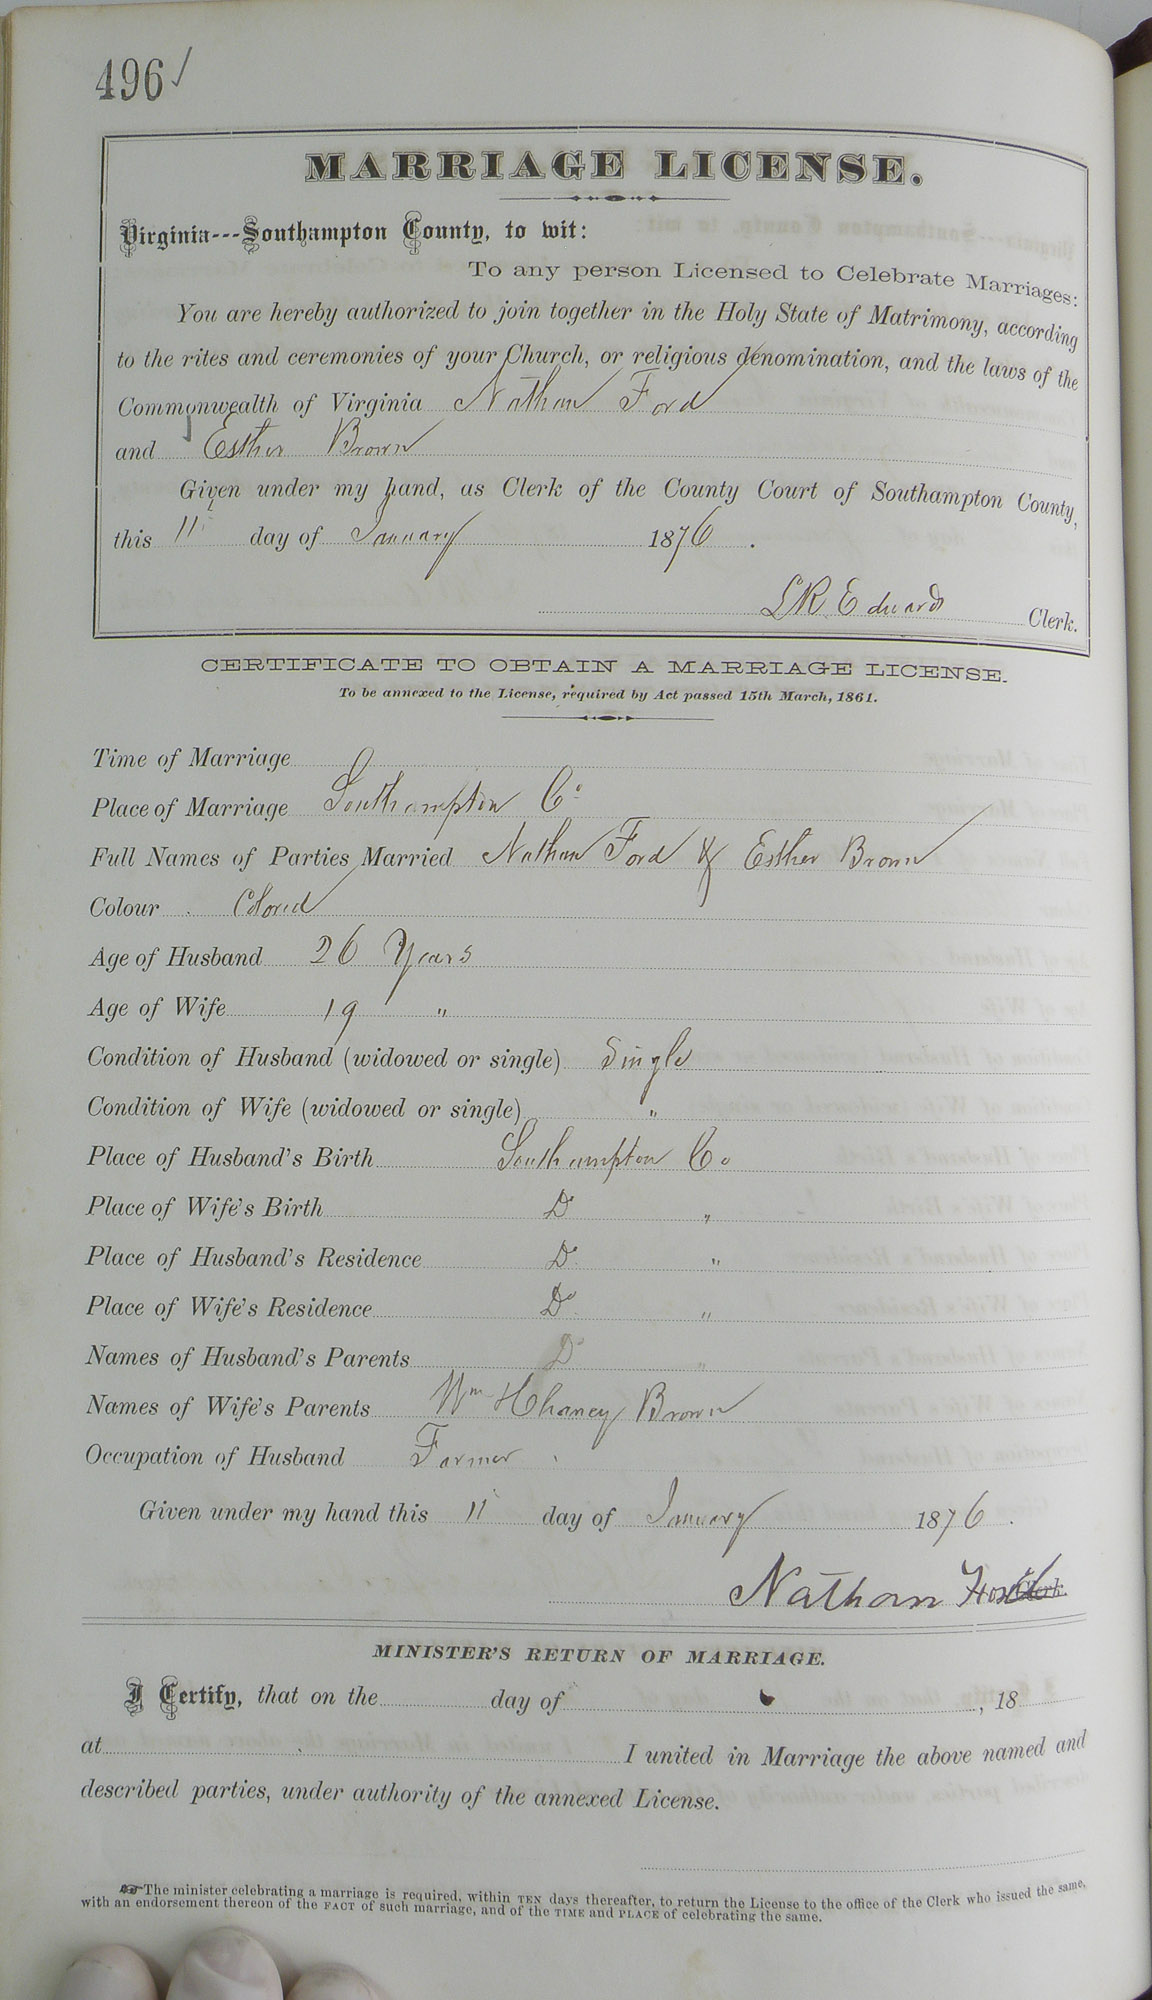 496 ✓
MARRIAGE LICENSE.
Virginia---Southampton County, to wit:
To any person Licensed to Celebrate Marriages:
You are hereby authorized to join together in the Holy State of Matrimony, according
to the rites and ceremonies of your Church, or religious denomination, and the laws of the
Commonwealth of Virginia Nathan Ford
and Esther Brown
Given under my hand, as Clerk of the County Court of Southampton County,
this 11 day of January 1876.
LR Edwards Clerk.
CERTIFICATE TO OBTAIN A MARRIAGE LICENSE.
To be annexed to the License, required by Act passed 15th March, 1861.
Time of Marriage
Place of Marriage Southampton Co
Full Names of Parties Married Nathan Ford & Esther Brown
Colour Colored
Age of Husband 26 Years
Age of Wife 19 "
Condition of Husband (widowed or single) Single
Condition of Wife (widowed or single) "
Place of Husband's Birth Southampton Co
Place of Wife's Birth Do "
Place of Husband's Residence Do "
Place of Wife's Residence Do "
Names of Husband's Parents Do "
Names of Wife's Parents Wm & Chaney Brown
Occupation of Husband Farmer
Given under my hand this 11 day of January 1876.
Nathan Ford Clerk.
MINISTER'S RETURN OF MARRIAGE.
I Certify, that on the day of , 18
at I united in Marriage the above named and
described parties, under authority of the annexed License.
☞ The minister celebrating a marriage is required, within TEN days thereafter, to return the License to the office of the Clerk who issued the same,
with an endorsement thereon of the FACT of such marriage, and of the TIME and PLACE of celebrating the same.